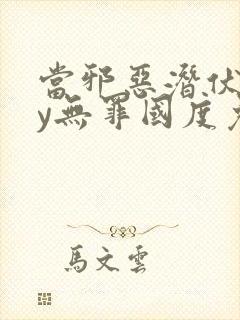 當邪惡潛伏
y無罪國度
馬文雲